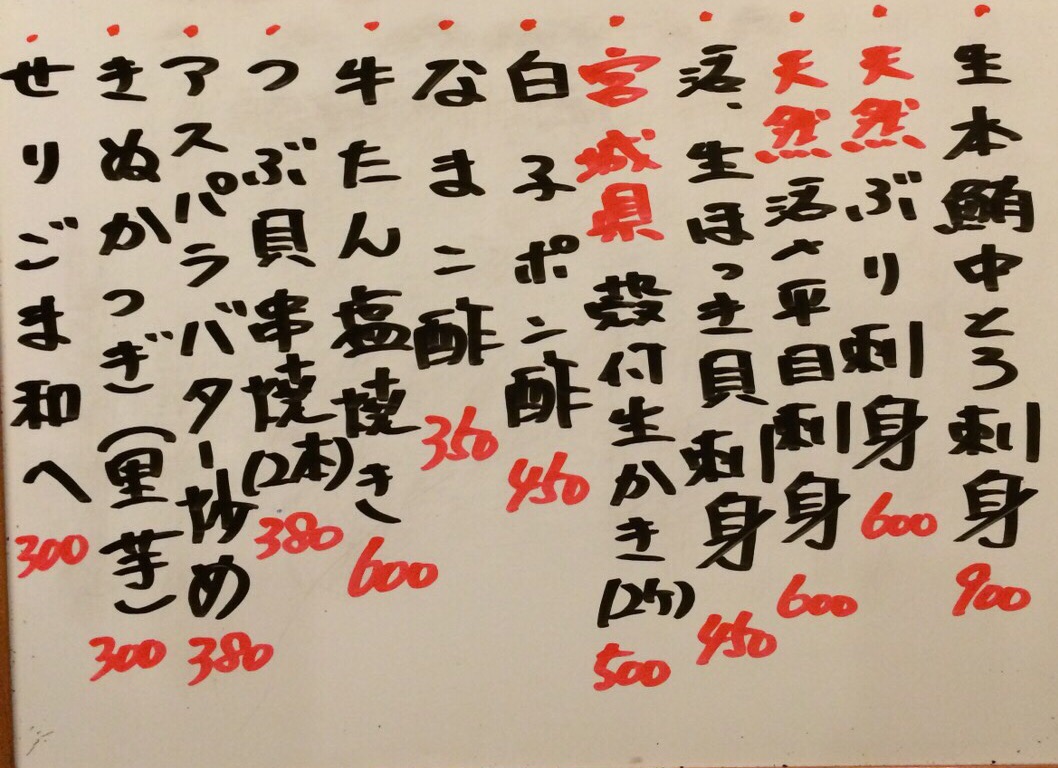 生本鮪中とろ刺身 900
天然ぶり刺身 600
天然活〆平目刺身 600
活、生ほっき貝刺身 450
宮城県殻付生かき(2ケ) 500
白子ポン酢 450
なまこ酢 350
牛たん塩焼き 600
つぶ貝串焼(2本) 380
アスパラバター炒め 380
きぬかつぎ(里芋) 300
せりごま和へ 300